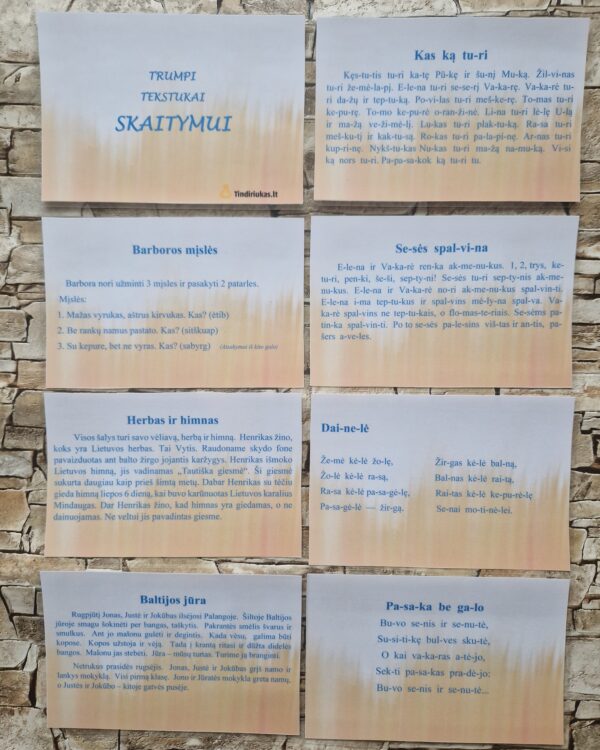 TRUMPI
TEKSTUKAI
SKAITYMUI
Tindiriukas.lt
Kas ką tu-ri
Kęs-tu-tis tu-ri ka-tę Pū-kę ir šu-nį Mu-ką. Žil-vi-nas
tu-ri že-mė-la-pį. E-le-na tu-ri se-se-rį Va-ka-rę. Va-ka-rė tu-
ri da-žų ir tep-tu-ką. Po-vi-las tu-ri meš-ke-rę. To-mas tu-ri
ke-pu-rę. To-mo ke-pu-rė o-ran-ži-nė. Li-na tu-ri lė-lę U-lą
ir ma-žą ve-ži-mė-lį. Lu-kas tu-ri plak-tu-ką. Ra-sa tu-ri
meš-ku-tį ir kak-tu-są. Ro-kas tu-ri pa-la-pi-nę. Ar-nas tu-ri
kup-ri-nę. Nykš-tu-kas Nu-kas tu-ri ma-žą na-mu-ką. Vi-si
ką nors tu-ri. Pa-pa-sa-kok ką tu-ri tu.
Barboros mįslės
Barbora nori užminti 3 mįsles ir pasakyti 2 patarles.
Mįslės:
1. Mažas vyrukas, aštrus kirvukas. Kas? (ėtib)
2. Be rankų namus pastato. Kas? (sitškuap)
3. Su kepure, bet ne vyras. Kas? (sabyrg) (Atsakymai iš kito galo)
Se-sės spal-vi-na
E-le-na ir Va-ka-rė ren-ka ak-me-nu-kus. 1, 2, trys, ke-
tu-ri, pen-ki, še-ši, sep-ty-ni! Se-sės tu-ri sep-ty-nis ak-me-
nu-kus. E-le-na ir Va-ka-rė no-ri ak-me-nu-kus spal-vin-ti.
E-le-na i-ma tep-tu-kus ir spal-vins mė-ly-na spal-va. Va-
ka-rė spal-vins ne tep-tu-kais, o flo-mas-te-riais. Se-sėms pa-
tin-ka spal-vin-ti. Po to se-sės pa-le-sins viš-tas ir an-tis, pa-
šers a-ve-les.
Herbas ir himnas
Visos šalys turi savo vėliavą, herbą ir himną. Henrikas žino,
koks yra Lietuvos herbas. Tai Vytis. Raudoname skydo fone
pavaizduotas ant balto žirgo jojantis karžygys. Henrikas išmoko
Lietuvos himną, jis vadinamas „Tautiška giesmė“. Ši giesmė
sukurta daugiau kaip prieš šimtą metų. Dabar Henrikas su tėčiu
gieda himną liepos 6 dieną, kai buvo karūnuotas Lietuvos karalius
Mindaugas. Dar Henrikas žino, kad himnas yra giedamas, o ne
dainuojamas. Ne veltui jis pavadintas giesme.
Dai-ne-lė
Že-mė kė-lė žo-lę,
Žo-lė kė-lė ra-są,
Ra-sa kė-lė pa-sa-gė-lę,
Pa-sa-gė-lė — žir-gą.
Žir-gas kė-lė bal-ną,
Bal-nas kė-lė rai-tą,
Rai-tas kė-lė ke-pu-rė-lę
Se-nai mo-ti-nė-lei.
Baltijos jūra
Rugpjūtį Jonas, Justė ir Jokūbas ilsėjosi Palangoje. Šiltoje Baltijos
jūroje smagu šokinėti per bangas, taškytis. Pakrantės smėlis švarus ir
smulkus. Ant jo malonu gulėti ir degintis. Kada vėsu, galima būti
kopose. Kopos užstoja ir vėją. Tada į krantą ritasi ir dūžta didelės
bangos. Malonu jas stebėti. Jūra – mūsų turtas. Turime ją branginti.
Netrukus prasidės rugsėjis. Jonas, Justė ir Jokūbas grįš namo ir
lankys mokyklą. Visi pirmą klasę. Jono ir Jūratės mokykla greta namų,
o Justės ir Jokūbo – kitoje gatvės pusėje.
Pa-sa-ka be ga-lo
Bu-vo se-nis ir se-nu-tė,
Su-si-ti-kę bul-ves sku-tė,
O kai va-ka-ras a-tė-jo,
Sek-ti pa-sa-kas pra-dė-jo:
Bu-vo se-nis ir se-nu-tė...